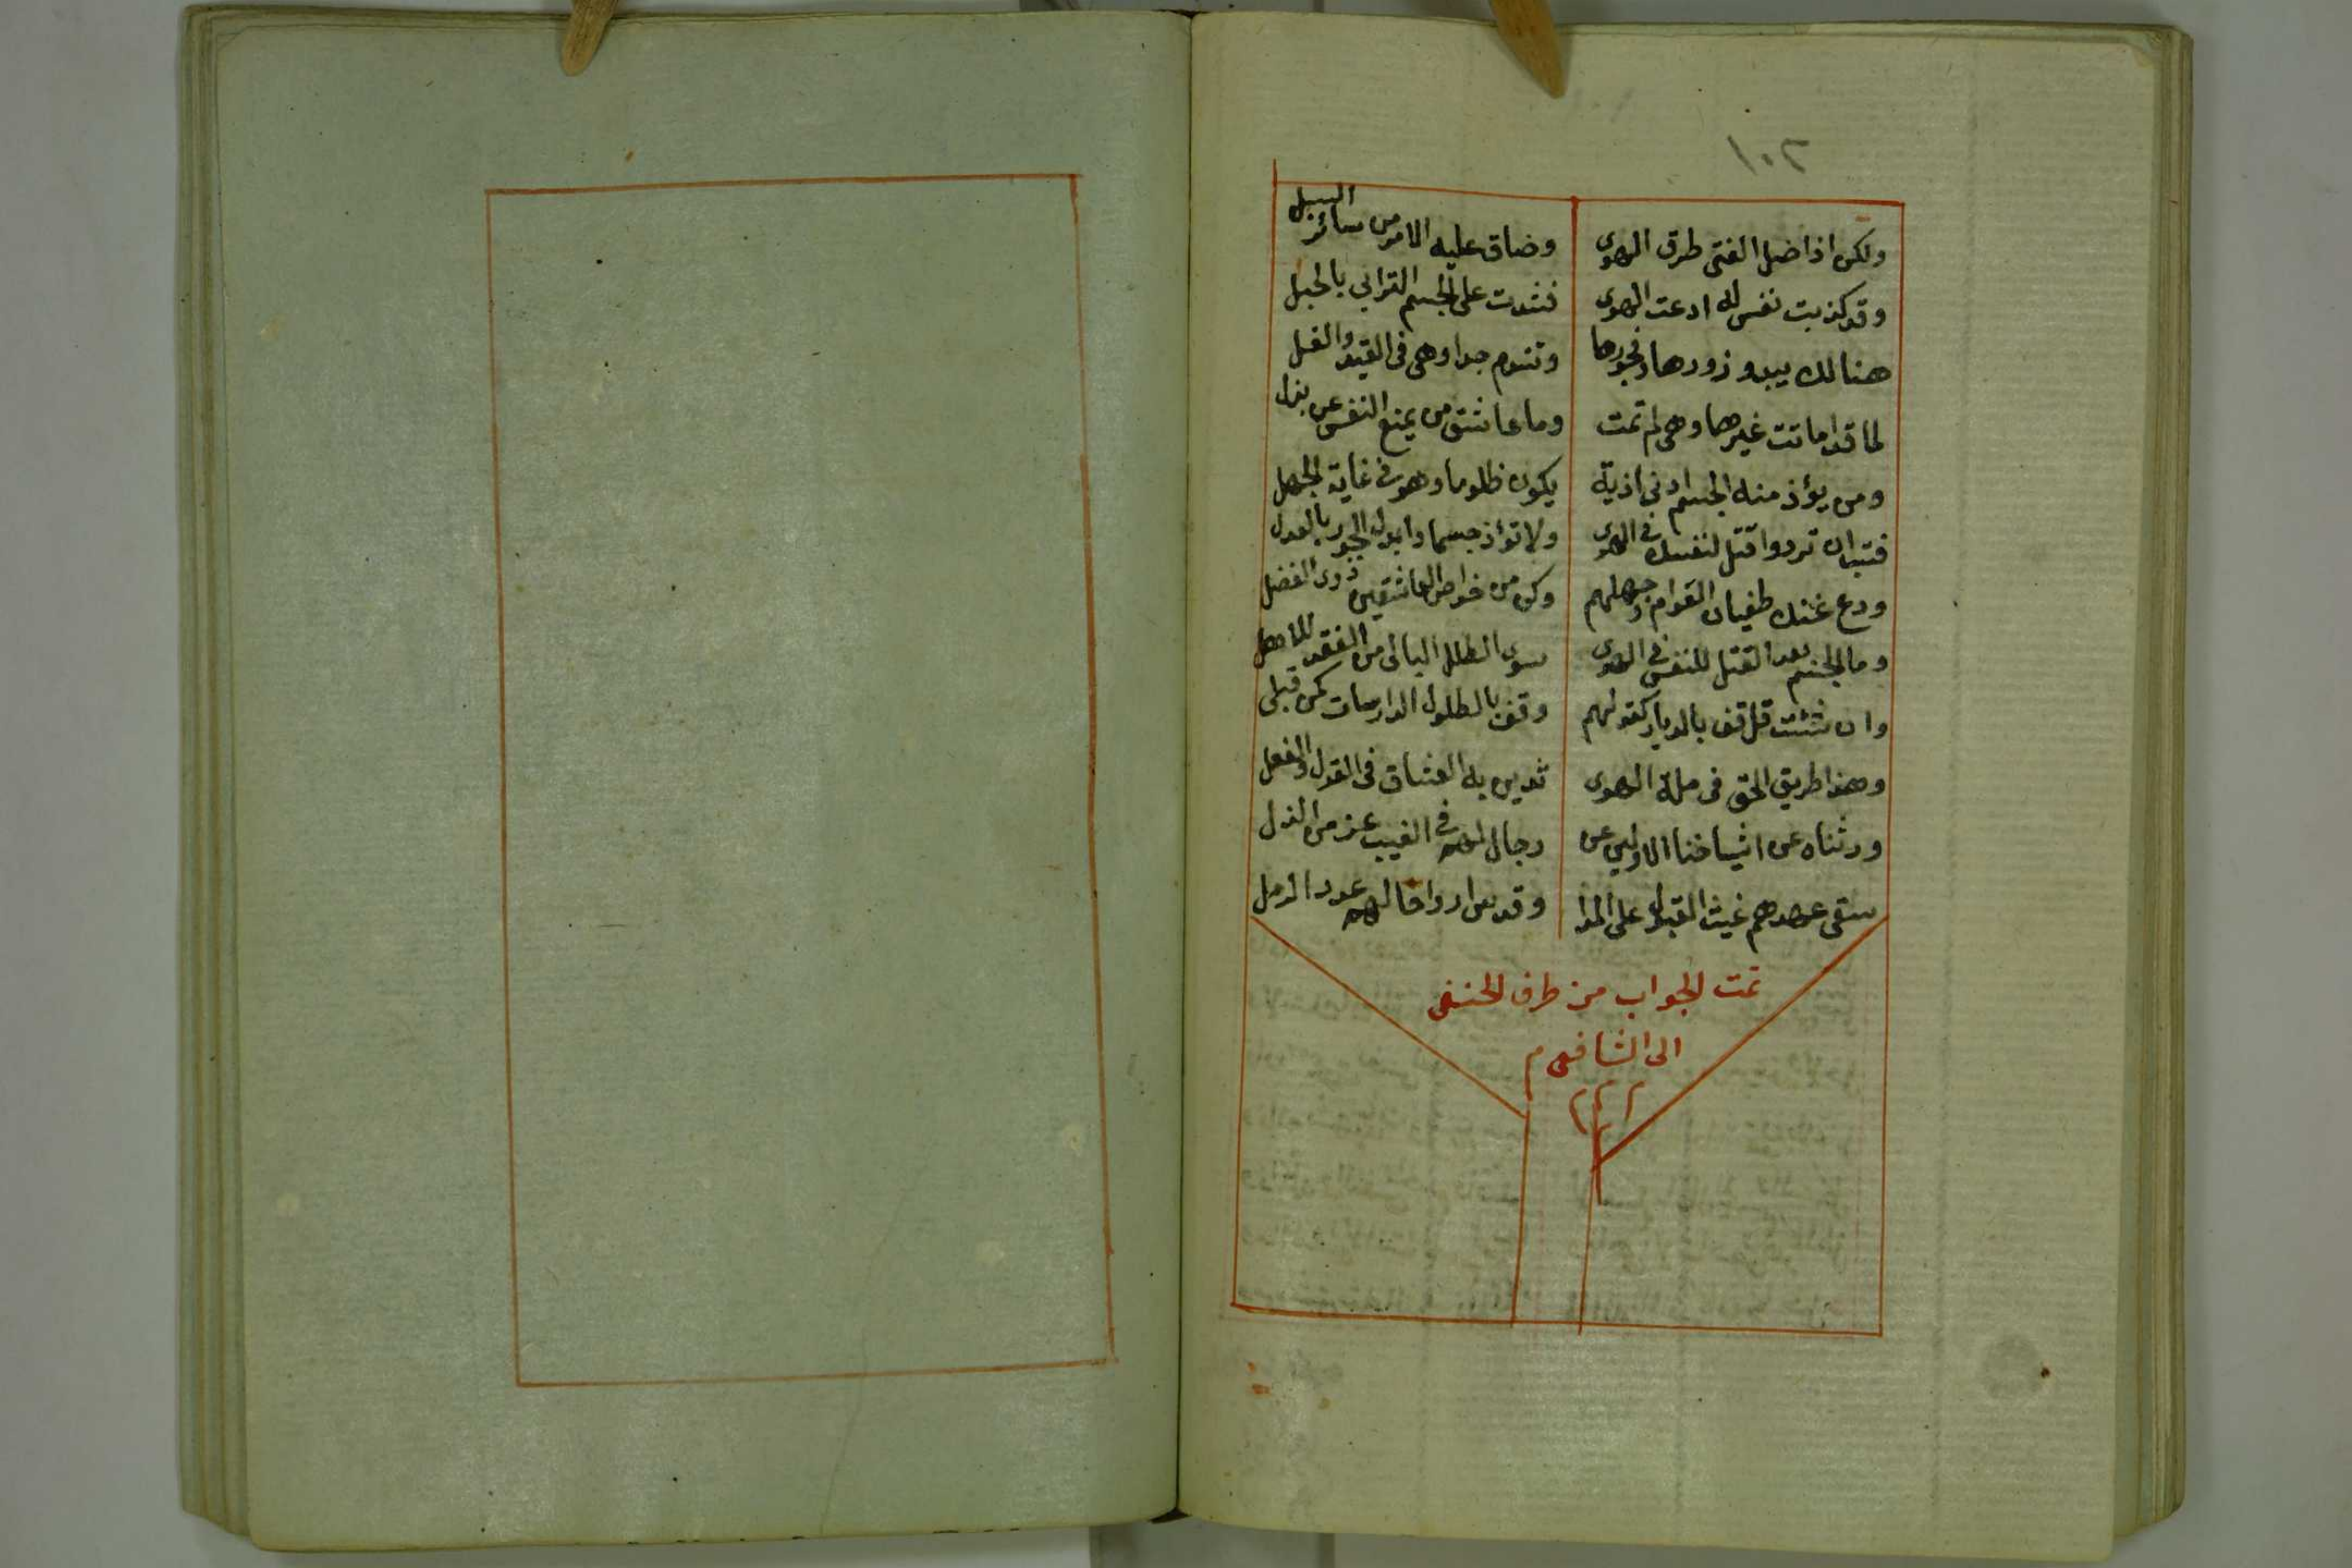 ١٠٢
ولكن اذا ضل الفتى طرق الهوى وضاق عليه الامر من سائر السبل
وقد كذبت نفس له ادعت الهوى فشدت على الجسم الترابي بالحبل
هنالك يبدو زورها وفجورها وتندم جدا وهي في القيد والغل
لما قد اماتت غيرها وهي لم تمت وما عاشق من يمنع النفس عن بذل
ومن يؤذ منه الجسم ادنى اذية يكون ظلوما وهو في غاية الجهل
فتب ان ترد واقتل لنفسك في الهوى ولا تؤذ جسما وابدل الجور بالعدل
ودع عنك طغيان العوام وجهلهم وكن من خواص العاشقين ذوي الفضل
وما الجسم بعد القتل للنفس في الهوى سوى الطلل البالى من الفقد للاهل
وان شئت قل قف بالديار كقولهم وقف بالطلول الدارسات كمن قبلى
وهذا طريق الحق فى ملة الهوى تدين به العشاق فى القول والفعل
ورثناه عن اشياخنا الاولي عن رجال لهم في الغيب عز من الذل
سقى عهدهم غيث القبول على المدا وقدس ارواحا لهم عدد الرمل
تمت الجواب من طرف الحنفى
الى الشافعى م